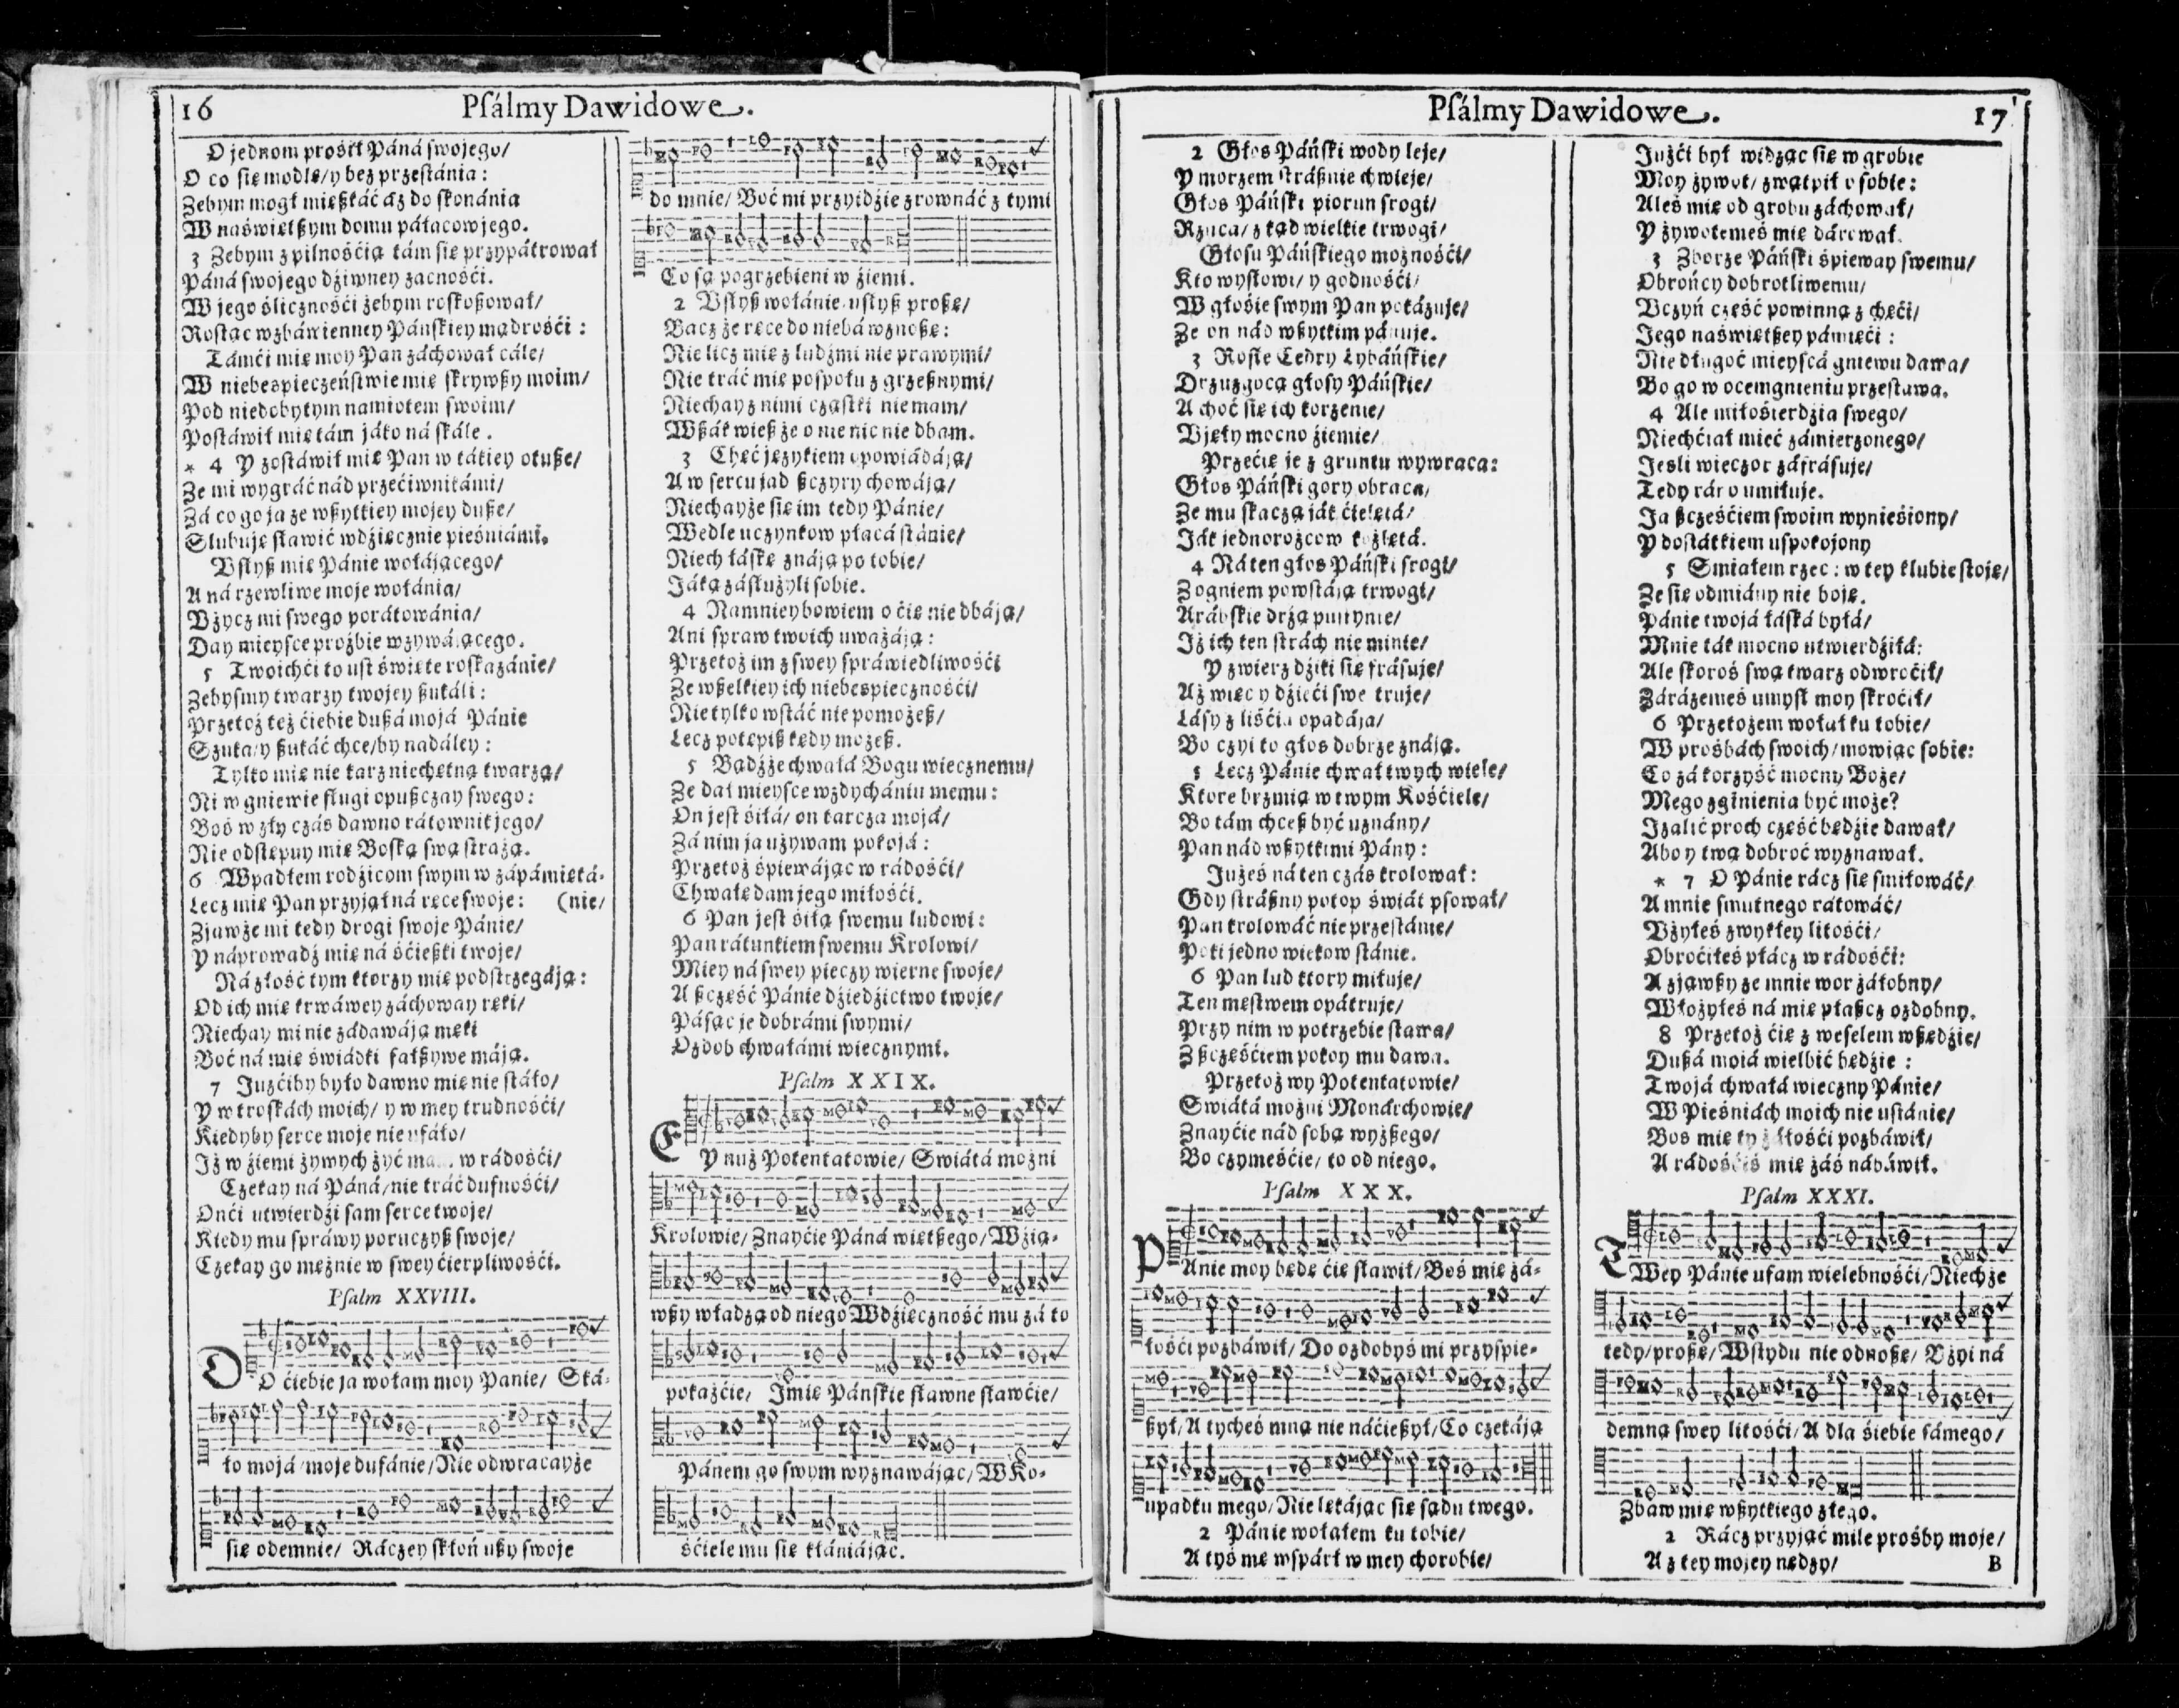 16 Pſálmy Dawidowe.
O jednom prośił Páná ſwojego/
O co ſię modlę/ y bez przeſtánia:
Zebym mogł mießkáć áż do ſkonánia
W naświetßym domu páłacow jego.
3 Zebym z pilnośćią tám ſię przypátrował
Páná ſwojego dźiwney zacnośći.
W jego ślicznośći żebym roſkoßował/
Roſtąc w zbáwienney Páńſkiey mądrośći:
Támći mię moy Pan záchował cále/
W niebeſpieczeńſtwie mię ſkrywßy moim/
Pod niedobytym namiotem ſwoim/
Poſtáwił mię tám jáko ná ſkále.
* 4 Y zoſtáwił mię Pan w tákiey otuße/
Ze mi wygráć nád przećiwnikámi/
Zá co go ja ze wßytkiey mojey duße/
Slubuję ſławić wdźięcznie pieśniámi.
Vſłyß mię Pánie wołájącego/
A ná rzewliwe moje wołánia/
Vżycz mi ſwego porátowánia/
Day mieyſce proźbie wzywájącego.
5 Twoichći to uſt święte roſkazánie/
Zebyſmy twarzy twojey ßukáli:
Przetoż też ćiebie dußá mojá Pánie
Szuka/ y ßukáć chce/ by nadáley:
Tylko mię nie karz niechętną twarzą/
Ni w gniewie ſługi opußczay ſwego:
Boś w zły czás dawno rátownik jego/
Nie odſtępuy mię Boſką ſwą ſtrażą.
6 Wpadłem rodźicom ſwym w zápámiętá-
Lecz mię Pan przyjął ná ręce ſwoje: (nie/
Zjawże mi tedy drogi ſwoje Pánie/
Y náprowadź mię ná śćießki twoje/
Ná złość tym ktorzy mię podſtrzegája:
Od ich mię krwáwey záchoway ręki/
Niechay mi nie zádawája męki
Boć ná mię świádki fałßywe mája.
7 Jużćiby było dawno mię nie ſtáło/
Y w troſkách moich/ y w mey trudnośći/
Kiedyby ſerce moje nie ufáło/
Iż w źiemi żywych żyć w rádośći/
Czekay ná Páná/ nie tráć dufnośći/
Onći utwierdźi ſam ſerce twoje/
Kiedy mu ſpráwy poruczyß ſwoje/
Czekay go mężnie w ſwey ćierpliwośći.
Pſalm XXVIII.
DO ćiebie ja wołam moy Panie/ Ská-
ło mojá/ moje dufánie/ Nie odwracayże
ſię odemnie/ Ráczey ſkłoń ußy ſwoje
do mnie/ Boć mi przyidźie zrownáć z tymi
Co ſą pogrzebieni w źiemi.
2 Vſłyß wołánie/ uſłyß proßę/
Bacz że ręce do niebá wznoßę:
Nie licz mię z ludźmi nie prawymi/
Nie tráć mię poſpołu z grzeßnymi/
Niechay z nimi cząſtki nie mam/
Wßák wieß że o nie nic nie dbam.
3 Chęć językiem opowiádája/
A w ſercu jad ßczyry chowája/
Niechayże ſię im tedy Pánie/
Wedle uczynkow płacá ſtánie/
Niech łáſkę znája po tobie/
Jáką záſłużyli ſobie.
4 Namniey bowiem o ćię nie dbája/
Ani ſpraw twoich uważája:
Przetoż im z ſwey ſpráwiedliwośći
Ze wßelkiey ich niebeſpiecznośći/
Nie tylko wſtáć nie pomożeß/
Lecz potępiß kędy możeß.
5 Bądźże chwałá Bogu wiecznemu/
Ze dał mieyſce wzdychániu memu:
On jeſt śiłá/ on tarcza mojá/
Zá nim ja używam pokojá:
Przetoż śpiewájąc w rádośći/
Chwałę dam jego miłośći.
6 Pan jeſt śiłą ſwemu ludowi:
Pan rátunkiem ſwemu Krolowi/
Miey ná ſwey pieczy wierne ſwoje/
A ßczęść Pánie dźiedźictwo twoje/
Páſąc je dobrámi ſwymi/
Ozdob chwałámi wiecznymi.
Pſalm XXIX.
EY nuż Potentatowie/ Swiátá możni
Krolowie/ Znayćie Páná więtßego/ Wźią-
wßy władzą od niego Wdźięczność mu zá to
pokażćie/ Jmię Páńſkie ſławne ſławćie/
Pánem go ſwym wyznawájąc/ W Ko-
śćiele mu ſię kłániájąc.
Pſálmy Dawidowe. 17
2 Głos Páńſki wody leje/
Y morzem ſtráßnie chwieje/
Głos Páńſki piorun ſrogi/
Rzuca/ z kąd wielkie trwogi/
Głoſu Páńſkiego możnośći/
Kto wyſłowi/ y godnośći/
W głośie ſwym Pan pokázuje/
Ze on nád wßytkim pánuje.
3 Roſłe Cedry Lybáńſkie/
Druzgocą głoſy Páńſkie/
A choć ſię ich korzenie/
Vjęły mocno źiemie/
Przećię je z gruntu wywraca:
Głos Páńſki gory obraca/
Ze mu ſkaczą ják ćielętá/
Ják jednorożcow koźlętá.
4 Ná ten głos Páńſki ſrogi/
Z ogniem powſtája trwogi/
Arábſkie drżą puſtynie/
Iż ich ten ſtrách nie minie/
Y zwierz dźiki ſię fráſuje/
Aż więc y dźieći ſwe truje/
Láſy z liśćia opadája/
Bo czyi to głos dobrze znája.
5 Lecz Pánie chwał twych wiele/
Ktore brzmią w twym Kośćiele/
Bo tám chceß być uznány/
Pan nád wßytkimi Pány:
Jużeś ná ten czás krolował:
Gdy ſtráßny potop świát pſował/
Pan krolowáć nie przeſtánie/
Poki jedno wiekow ſtánie.
6 Pan lud ktory miłuje/
Ten męſtwem opátruje/
Przy nim w potrzebie ſtawa/
Z ßczęśćiem pokoy mu dawa.
Przetoż wy Potentatowie/
Swiátá możni Monárchowie/
Znayćie nád ſobą wyżßego/
Bo czymeśćie/ to od niego.
Pſalm XXX.
PAnie moy będę ćię ſławił/ Boś mię żá-
łośći pozbáwił/ Do ozdobyś mi przyſpie-
ßył/ A tycheś mną nie náćießył/ Co czekája
upadku mego/ Nie lękájąc ſię ſądu twego.
2 Pánie wołałem ku tobie/
A tyś mę wſpárł w mey chorobie/
Jużći był widząc ſię w grobie
Moy żywot/ zwątpił o ſobie:
Aleś mię od grobu záchował/
Y żywotemeś mię dárował.
3 Zborze Páńſki śpieway ſwemu/
Obrońcy dobrotliwemu/
Vczyń cześć powinną z chęći/
Jego naświętßey pámięći:
Nie długoć mieyſcá gniewu dawa/
Bo go w ocemgnieniu przeſtawa.
4 Ale miłośierdźia ſwego/
Niechćiał mieć zámierzonego/
Jeśli wieczor záfráſuje/
Tedy ráno umiłuje.
Ja ßczęśćiem ſwoim wynieśiony/
Y doſtátkiem uſpokojony
5 Smiałem rzec: w tey klubie ſtoję/
Ze ſię odmiány nie boję.
Pánie twojá łáſká byłá/
Mnie ták mocno utwierdźiłá:
Ale ſkoroś ſwą twarz odwroćił/
Zárázemeś umyſł moy ſkroćił/
6 Przetożem wołał ku tobie/
W prośbách ſwoich/ mowiąc ſobie:
Co zá korzyść mocny Boże/
Mego zginienia być może?
Izalić proch cześć będźie dawał/
Abo y twą dobroć wyznawał.
* 7 O Pánie rácz ſię ſmiłowáć/
A mnie ſmutnego rátowáć/
Vżyłeś zwykłey litośći/
Obroćiłeś płácz w rádośći:
A zjawßy ze mnie wor żáłobny/
Włożyłeś ná mię płaßcz ozdobny.
8 Przetoż ćię z weſelem wßędźie/
Dußá moiá wielbić będźie:
Twojá chwałá wieczny Pánie/
W Pieśniách moich nie uſtánie/
Boś mię ty żáłośći pozbáwił/
A rádośćiś mię záś nábáwił.
Pſalm XXXI.
TWey Pánie ufam wielebnośći/ Niechże
tedy/ proßę/ Wſtydu nie odnoßę/ Vżyi ná
demną ſwey litośći/ A dla śiebie ſámego/
Zbaw mię wßytkiego złego.
2 Rácz przyjąć mile prośby moje/
A z tey mojey nędzy/
B